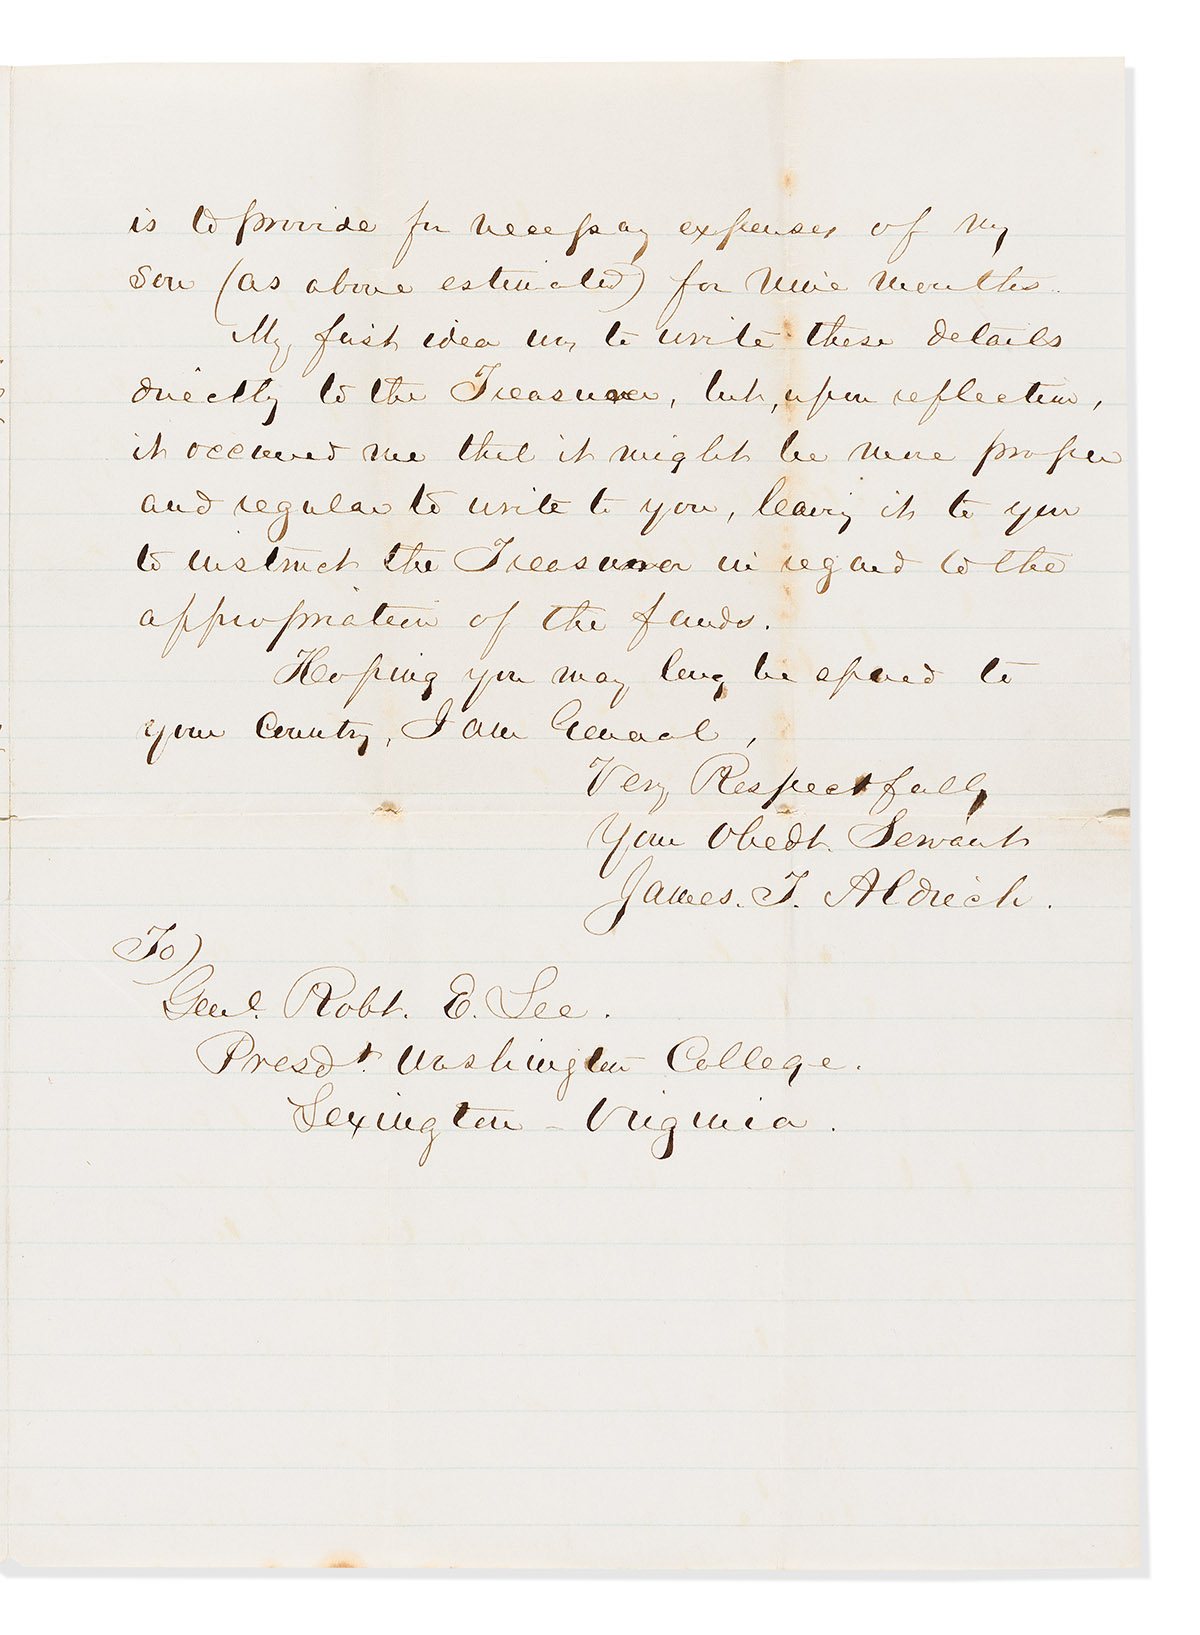 is to provide for necessary expenses of my
son (as above estimated) for nine months.
My first idea was to write these details
directly to the Treasurer, but, upon reflection,
it occurred me that it might be more proper
and regular to write to you, leaving it to you
to instruct the Treasurer in regard to the
appropriation of the funds.
Hoping you may long be spared to
your Country, I am General,
Very Respectfully
Your Obedt. Servant
James. T. Aldrich.
To)
Genl. Robt. E. Lee.
Presdt. Washington College.
Lexington - Virginia.